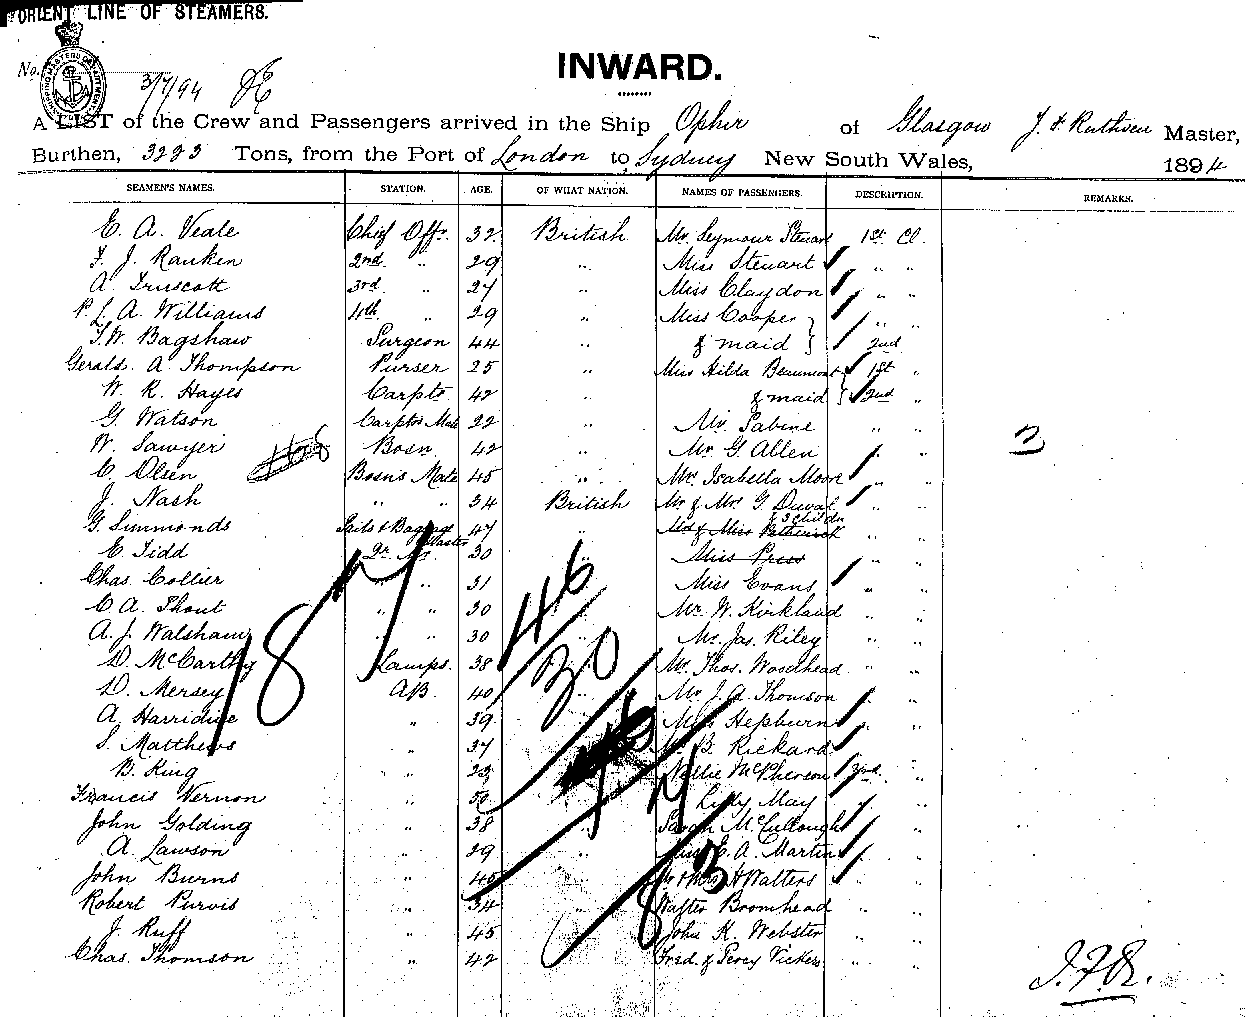 ORIENT LINE OF STEAMERS.
No. 3/7/94
INWARD.
A LIST of the Crew and Passengers arrived in the Ship Ophir of Glasgow J. F. Ruthven Master,
Burthen, 3223 Tons, from the Port of London to Sydney New South Wales, 1894
SEAMEN'S NAMES. STATION. AGE. OF WHAT NATION. NAMES OF PASSENGERS. DESCRIPTION. REMARKS.
E. A. Veale Chief Offr. 32 British Mr. Seymour Steuart 1st Cl.
F. J. Ranken 2nd " 29 " Miss Steuart " "
A. Truscott 3rd " 27 " Miss Claydon " "
P. L. A. Williams 4th " 29 " Miss Cooper " "
T. W. Bagshaw Surgeon 44 " & maid 2nd
Gerald. A. Thompson Purser 25 " Miss Hilda Beaumont 1st "
W. R. Hayes Carptr 42 " & maid 2nd "
G. Watson Carptrs Mate 22 " Mr. Sabine " "
W. Sawyer Bosn 42 " Mr G. Allen " "
C. Olsen Bosn's Mate 45 " Isabella Moore " "
J. Nash " " 34 British Mr & Mrs G. Duval " "
& 3 childn
G. Simmonds Sails & Baggage Master 47 " " "
E. Tidd Qr Mr. 30 " Miss Press " "
Chas. Collier " " 31 Miss Evans " "
C. A. Thout " " 30 " Mr W. Kirkland " "
A. J. Walsham " " 30 Mr. Jas. Riley " "
D. McCarthy Lamps. 38 Mr. Thos. Woodhead " "
D. Mersey AB. 40 " Mr J. A. Thomson " "
A. Harridine " 39 Miss Hepburn " "
S. Matthews " 37 B. Rickard " "
B. King " 23 Nellie McPherson 3rd "
Francis Vernon " 50 Lily May " "
John Golding " 38 Sarah McCullough " "
A. Lawson " 29 " Miss E. A. Martin " "
John Burns " 45 Mr & Mrs H Walters " "
Robert Purvis " 34 " Walter Bromhead " "
J. Ruff " 45 John K. Webster " "
Chas. Thomson " 42 Fred. & Percy Vickers " "
187
46
30
83
J.F.R.